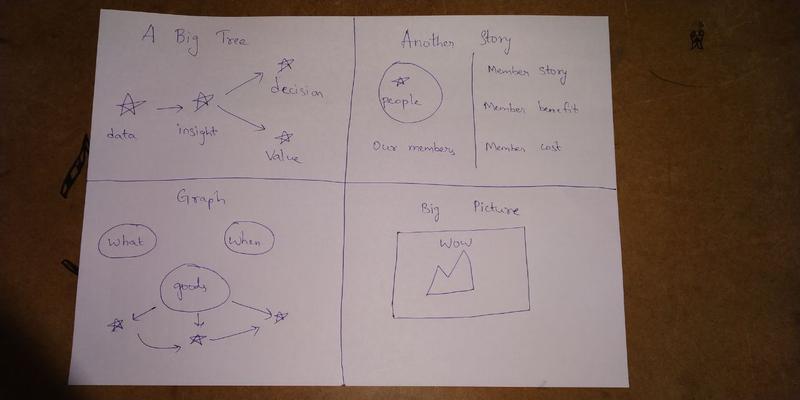 A Big Tree
decision
data insight
Value
Another Story
people
Our members
Member story
Member benefit
Member cost
Graph
What When
goods
Big Picture
WOW